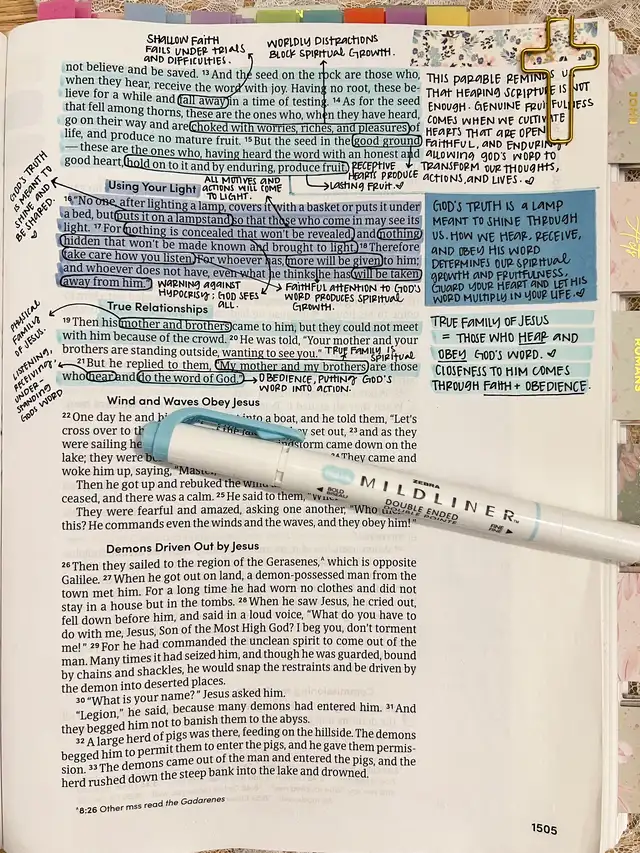 SHALLOW FAITH
FAILS UNDER TRIALS
AND DIFFICULTIES.
WORLDLY DISTRACTIONS
BLOCK SPIRITUAL GROWTH.
not believe and be saved. 13 And the seed on the rock are those who,
when they hear, receive the word with joy. Having no root, these be-
lieve for a while and fall away in a time of testing. 14 As for the seed
that fell among thorns, these are the ones who, when they have heard,
go on their way and are choked with worries, riches, and pleasures of
life, and produce no mature fruit. 15 But the seed in the good ground
— these are the ones who, having heard the word with an honest and
good heart, hold on to it and by enduring, produce fruit.
RECEPTIVE
HEARTS PRODUCE
LASTING FRUIT. ♡
THIS PARABLE REMINDS US
THAT HEARING SCRIPTURE IS NOT
ENOUGH. GENUINE FRUITFULNESS
COMES WHEN WE CULTIVATE
HEARTS THAT ARE OPEN,
FAITHFUL, AND ENDURING
ALLOWING GOD'S WORD TO
TRANSFORM OUR THOUGHTS,
ACTIONS, AND LIVES. ♡
GOD'S TRUTH
IS MEANT TO
SHINE AND
BE SHARED.
♡
Using Your Light
ALL MOTIVES AND
ACTIONS WILL COME
TO LIGHT.
16 "No one, after lighting a lamp, covers it with a basket or puts it under
a bed, but puts it on a lampstand so that those who come in may see its
light. 17 For nothing is concealed that won't be revealed, and nothing
hidden that won't be made known and brought to light. 18 Therefore
take care how you listen. For whoever has, more will be given to him;
and whoever does not have, even what he thinks he has will be taken
away from him."
WARNING AGAINST
HYPOCRISY; GOD SEES
ALL.
FAITHFUL ATTENTION TO GOD'S
WORD PRODUCES SPIRITUAL
GROWTH.
GOD'S TRUTH IS A LAMP
MEANT TO SHINE THROUGH
US. HOW WE HEAR, RECEIVE,
AND OBEY HIS WORD
DETERMINES OUR SPIRITUAL
GROWTH AND FRUITFULNESS,
GUARD YOUR HEART AND LET HIS
WORD MULTIPLY IN YOUR LIFE. ♡
PHYSICAL
FAMILY
OF JESUS.
True Relationships
19 Then his mother and brothers came to him, but they could not meet
with him because of the crowd. 20 He was told, "Your mother and your
brothers are standing outside, wanting to see you."
TRUE FAMILY IS SPIRITUAL
21 But he replied to them, "My mother and my brothers are those
who hear and do the word of God."
OBEDIENCE, PUTTING GOD'S
WORD INTO ACTION.
LISTENING,
RECEIVING,
UNDER-
STANDING
GODS WORD
TRUE FAMILY OF JESUS
= THOSE WHO HEAR AND
OBEY GOD'S WORD. ♡
CLOSENESS TO HIM COMES
THROUGH FAITH + OBEDIENCE.
Wind and Waves Obey Jesus
22 One day he and his into a boat, and he told them, "Let's
cross over to th set out, 23 and as they
were sailing he windstorm came down on the
lake; they were be 24 They came and
woke him up, saying, "Master,
Then he got up and rebuked the wind
ceased, and there was a calm. 25 He said to them,
They were fearful and amazed, asking one another, "Who
this? He commands even the winds and the waves, and they obey him!"
ZEBRA
MILDLINER™
DOUBLE ENDED
DOUBLE POINTE
BOLD
BISEAU
FINE
FINE
Demons Driven Out by Jesus
26 Then they sailed to the region of the Gerasenes,^ which is opposite
Galilee. 27 When he got out on land, a demon-possessed man from the
town met him. For a long time he had worn no clothes and did not
stay in a house but in the tombs. 28 When he saw Jesus, he cried out,
fell down before him, and said in a loud voice, "What do you have to
do with me, Jesus, Son of the Most High God? I beg you, don't torment
me!" 29 For he had commanded the unclean spirit to come out of the
man. Many times it had seized him, and though he was guarded, bound
by chains and shackles, he would snap the restraints and be driven by
the demon into deserted places.
30 "What is your name?" Jesus asked him.
"Legion," he said, because many demons had entered him. 31 And
they begged him not to banish them to the abyss.
32 A large herd of pigs was there, feeding on the hillside. The demons
begged him to permit them to enter the pigs, and he gave them permis-
sion. 33 The demons came out of the man and entered the pigs, and the
herd rushed down the steep bank into the lake and drowned.
^8:26 Other mss read the Gadarenes
1505
JOHN
Acts
ROMANS